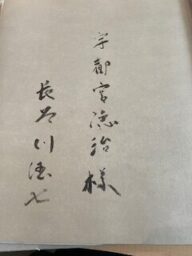 宇都宮徳治様
長谷川徳七